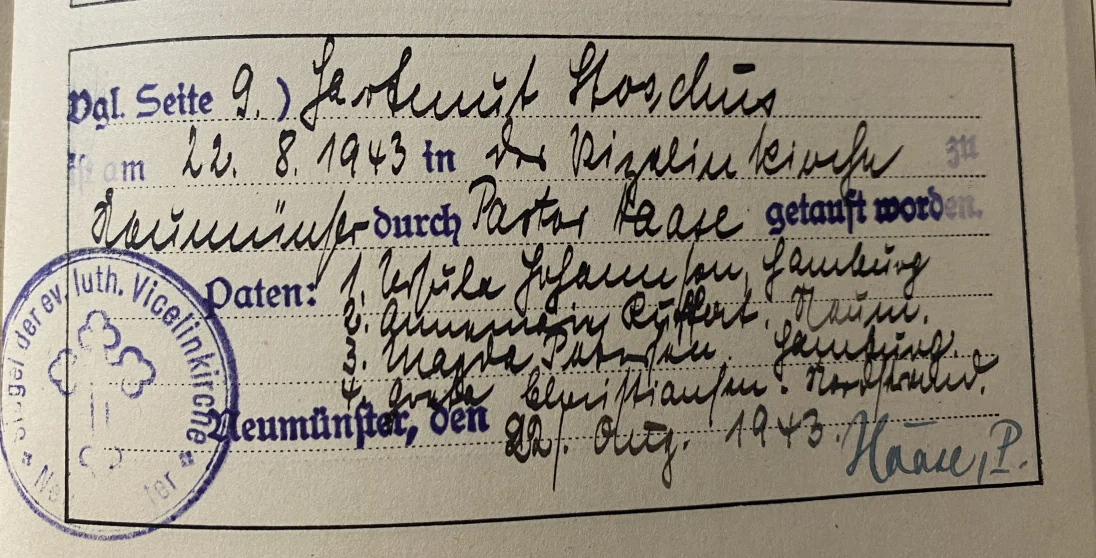 Vgl. Seite 9.) Hartmut Stoschus
ist am 22. 8. 1943 in der Vizelinkirche zu
Neumünster durch Pastor Haase getauft worden.
Paten: 1. Ursula Johannsen, Hamburg
2. Annemarie Neum.
3. Magda Petersen. Hamburg.
4. Christiansen. Nordstrand.
Neumünster, den 22. Aug. 1943. Haase, P.
Siegel der ev. luth. Vicelinkirche